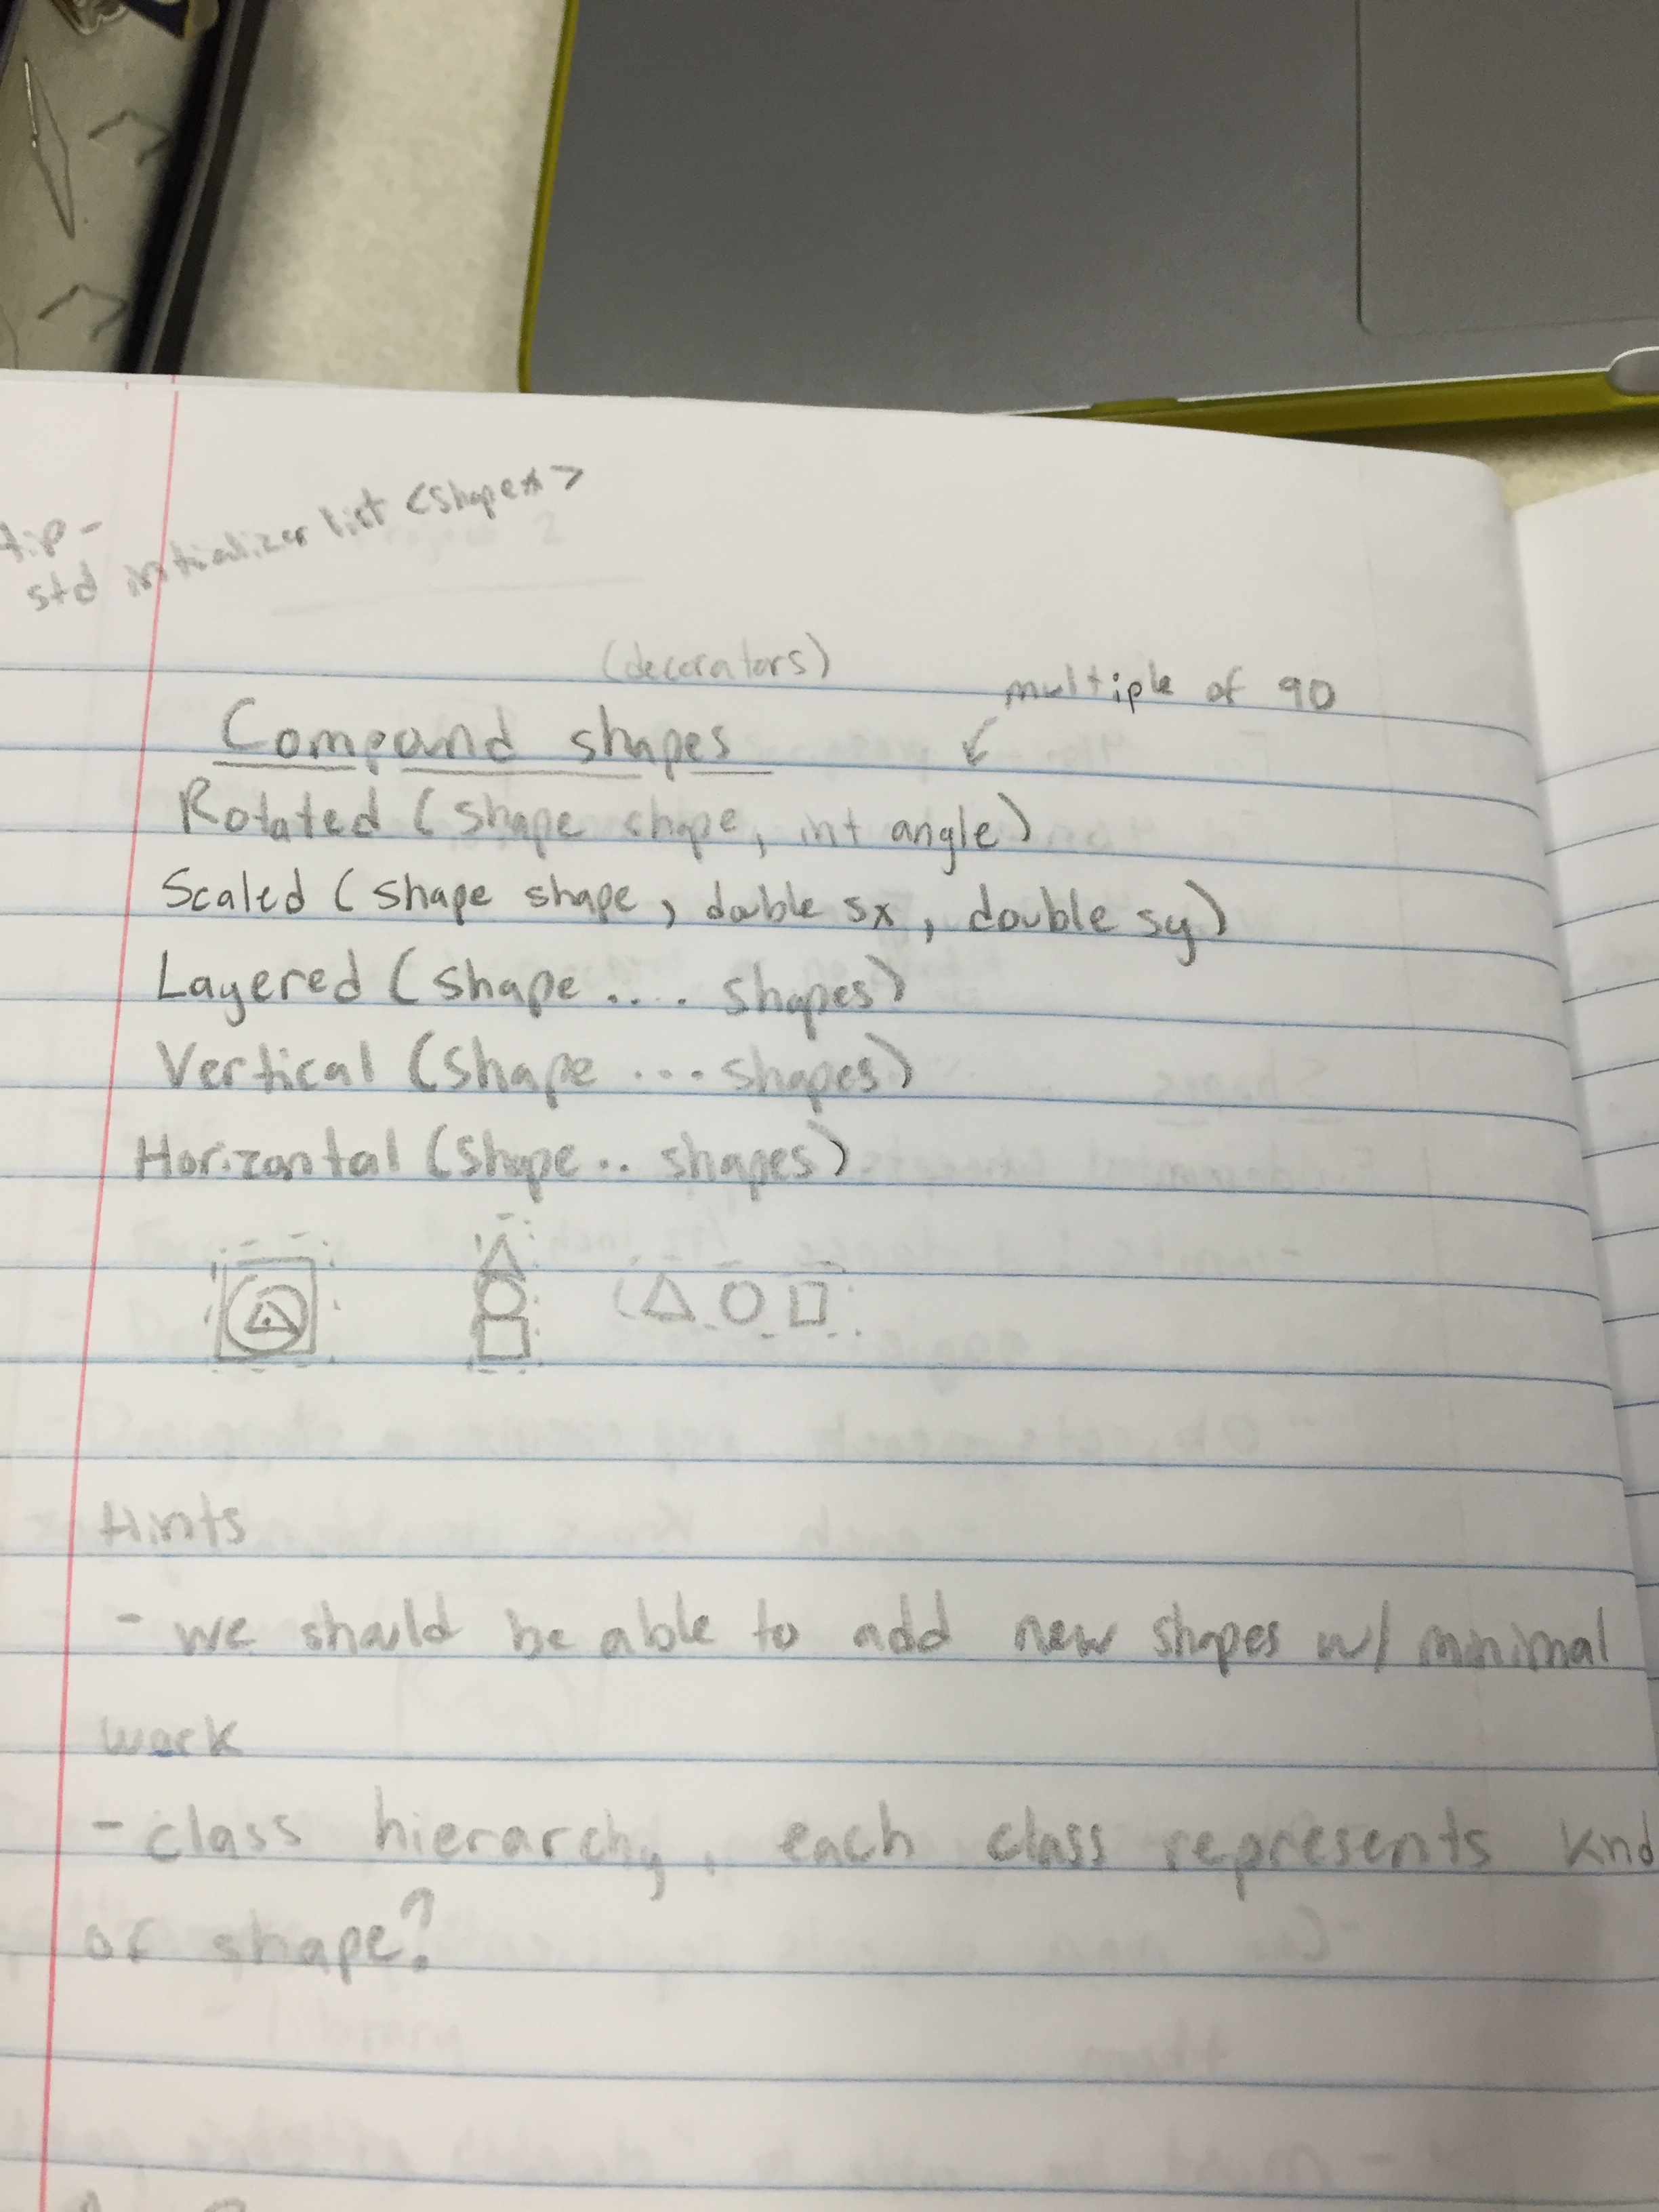 tip-
std initializer list <Shape*>
(decorators)
multiple of 90
Compound shapes
Rotated (Shape shape, int angle)
Scaled (Shape shape, double sx, double sy)
Layered (Shape .... shapes)
Vertical (Shape ... shapes)
Horizontal (Shape .. shapes)
Hints
- we should be able to add new shapes w/ minimal
work
- class hierarchy, each class represents knd
of shape?